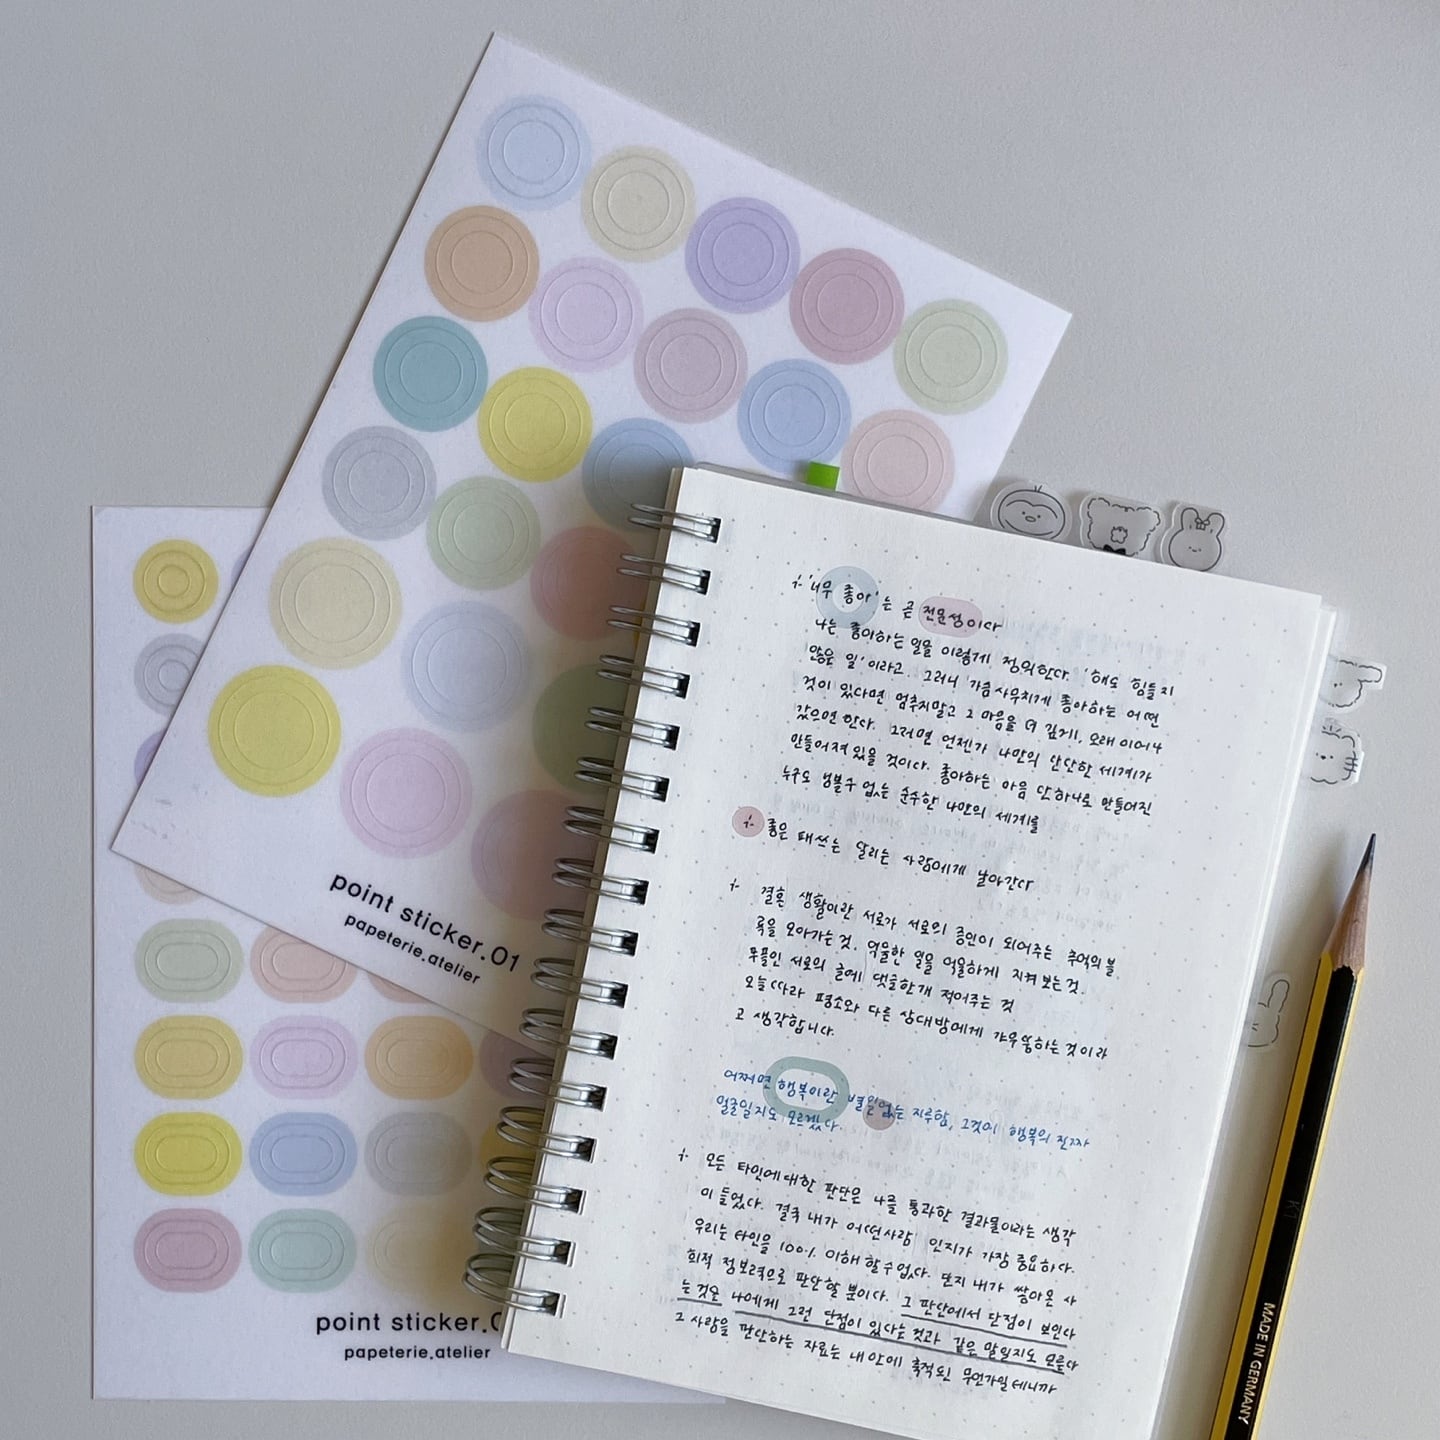 point sticker.01
papeterie.atelier
point sticker.0
papeterie.atelier
+ '너무 좋아'는 곧 전문성이다
나는 좋아하는 일을 이렇게 정의한다. '해도 힘들지
않은 일'이라고. 그러니 가슴사무치게 좋아하는 어떤
것이 있다면 멈추지말고 그 마음을 더 깊게, 오래 이어나
갔으면 한다. 그러면 언젠가 나만의 단단한 세계가
만들어져 있을 것이다. 좋아하는 마음 단 하나로 만들어진
누구도 넘볼 수 없는 순수한 나만의 세계를
+ 좋은 패쓰는 달리는 사람에게 날아간다
+ 결혼 생활이란 서로가 서로의 증인이 되어주는 추억의 불
룩을 모아가는 것. 억울한 일을 억울하게 지켜 보는 것.
무플인 서로의 글에 댓글한개 적어주는 것
오늘따라 평소와 다른 상대방에게 갸우뚱하는 것이라
고 생각합니다.
어쩌면 행복이란 별일없는 지루함, 그것이 행복의 진짜
얼굴일지도 모르겠다.
+ 모든 타인에 대한 판단은 나를 통과한 결과물이라는 생각
이 들었다. 결국 내가 어떤사람 인지가 가장 중요하다.
우리는 타인을 100% 이해 할 수 없다. 단지 내가 쌓아온 사
회적 정보력으로 판단할 뿐이다. 그 판단에서 단점이 보인다
는 것은 나에게 그런 단점이 있다는 것과 같은 말일지도 모른다
그 사람을 판단하는 자료는 내 안에 축적된 무언가일 테니까
MADE IN GERMANY